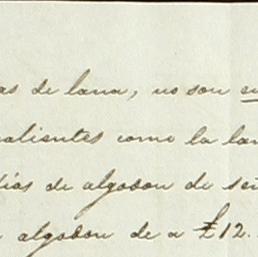 as de lana, no son
calientes como la lan
dias de algodon de señ
algodon de a £12.